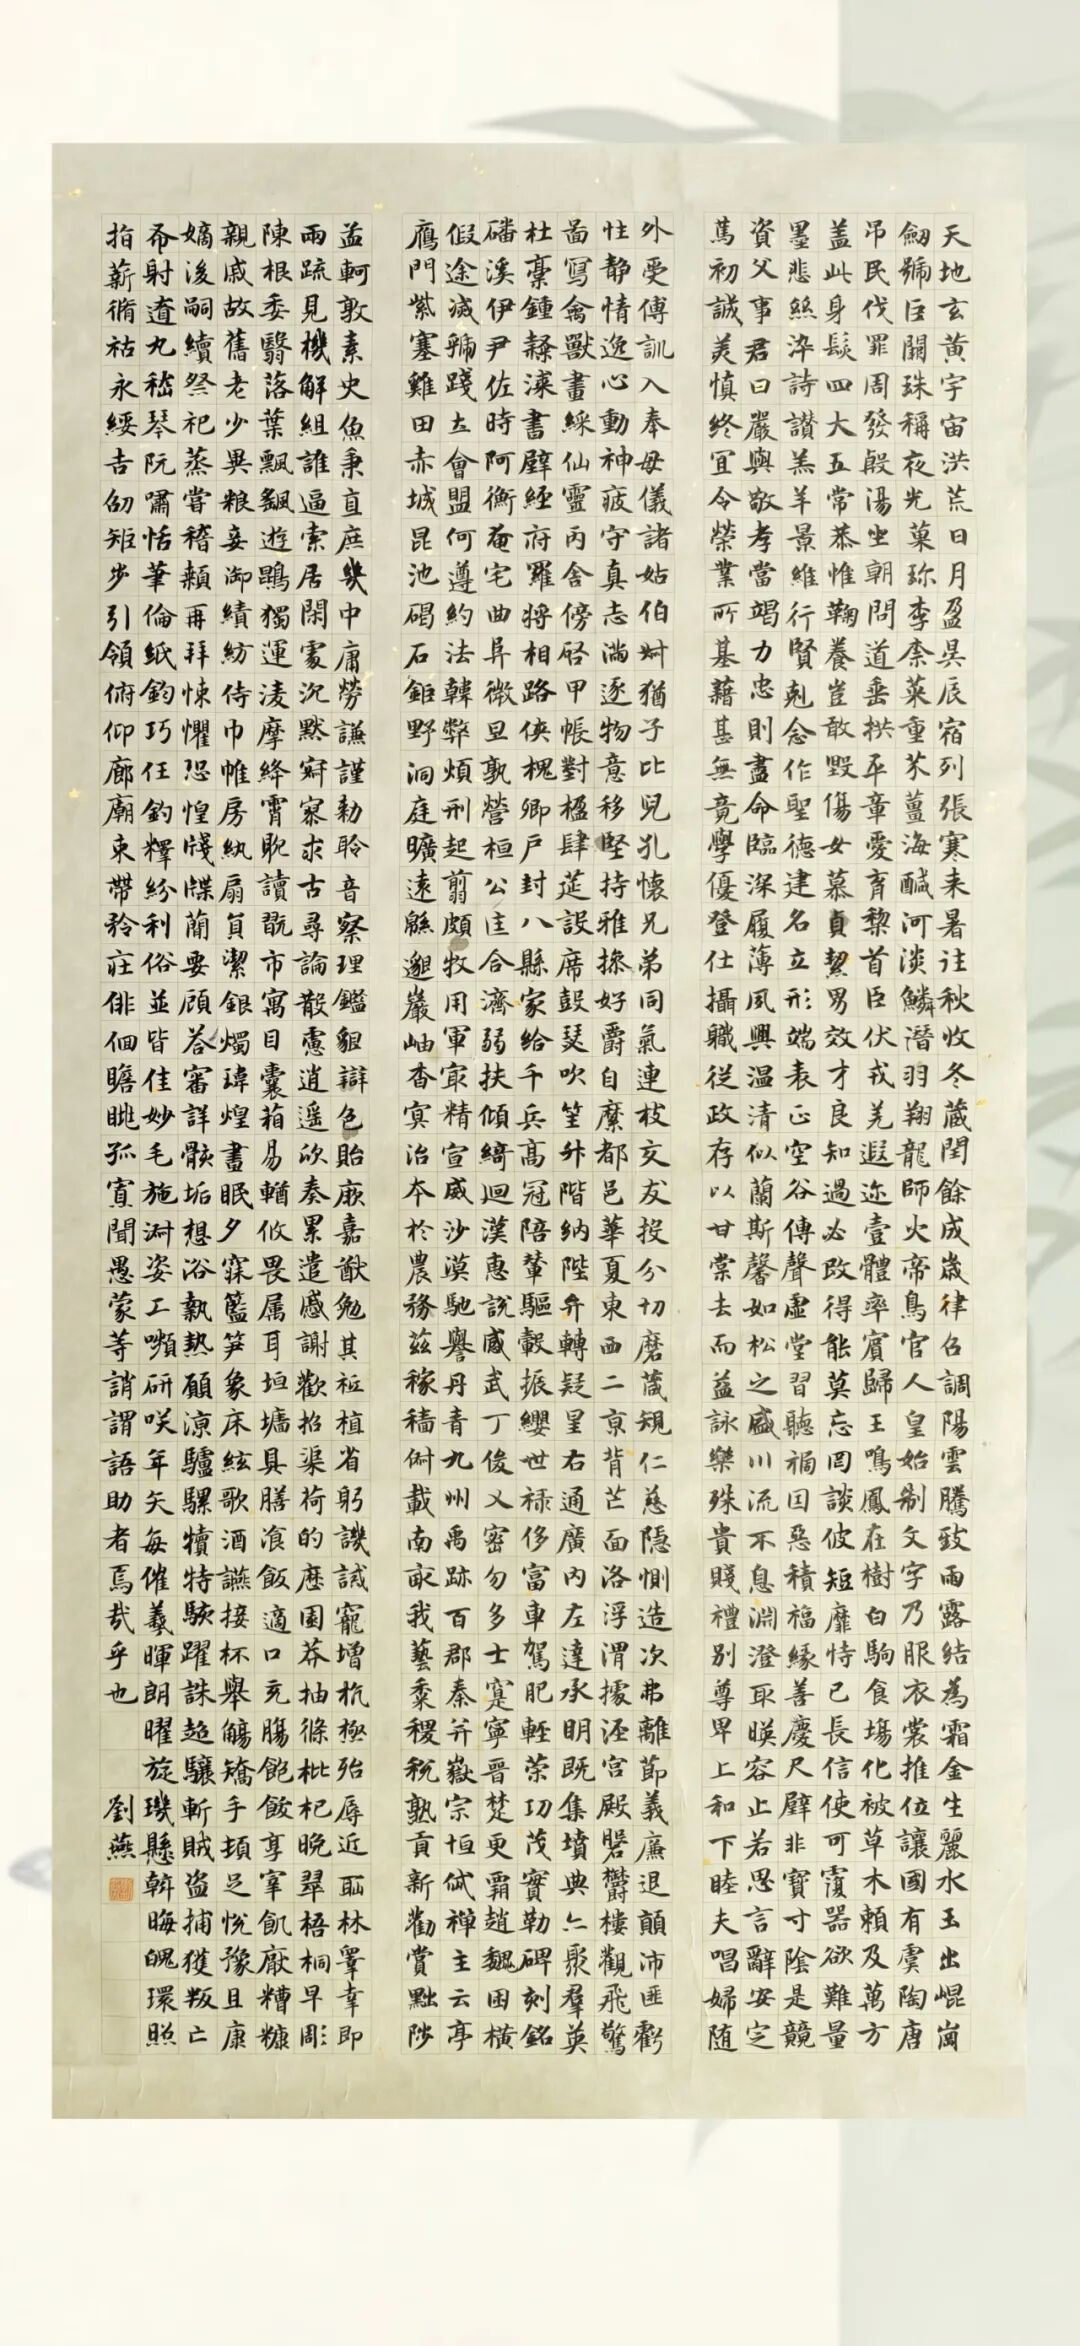 天地玄黃宇宙洪荒日月盈昃辰宿列張寒来暑往秋收冬蔵閏餘成歲律召調陽雲騰致雨露結為霜金生麗水玉出崐崗
劒號巨闕珠稱夜光菓珎李柰菜重芥薑海醎河淡鱗潛羽翔龍師火帝鳥官人皇始制文字乃服衣裳推位讓國有虞陶唐
吊民伐罪周發殷湯坐朝問道垂拱平章愛育黎首臣伏戎羌遐迩壹體率賓歸王鳴鳳在樹白駒食塲化被草木賴及萬方
盖此身髮四大五常恭惟鞠養豈敢毀傷女慕貞絜男效才良知過必改得能莫忘罔談彼短靡恃己長信使可覆器欲難量
墨悲絲染詩讃羔羊景維行賢剋念作聖德建名立形端表正空谷傳聲虛堂習聽禍因惡積福緣善慶尺璧非寶寸陰是競
資父事君曰嚴與敬孝當竭力忠則盡命臨深履薄夙興温清似蘭斯馨如松之盛川流不息淵澄取暎容止若思言辭安定
篤初誠美慎終宜令榮業所基藉甚無竟學優登仕攝職從政存以甘棠去而益詠樂殊貴賤禮别尊卑上和下睦夫唱婦随
外受傅訓入奉母儀諸姑伯叔猶子比兒孔懷兄弟同氣連枝交友投分切磨箴規仁慈隱惻造次弗離節義廉退顛沛匪虧
性静情逸心動神疲守真志滿逐物意移堅持雅操好爵自縻都邑華夏東西二京背芒面洛浮渭據涇宫殿磐欝樓觀飛驚
啚寫禽獸畫綵仙靈丙舍傍啓甲帳對楹肆筵設席鼓瑟吹笙升階納陛弁轉疑星右通廣內左達承明既集墳典亦聚羣英
杜稾鍾隸漆書壁經府羅將相路俠槐卿戶封八縣家給千兵高冠陪輦驅轂振纓世禄侈富車駕肥輕策功茂實勒碑刻銘
磻溪伊尹佐時阿衡奄宅曲阜微旦孰營桓公匡合濟弱扶傾綺迴漢惠說感武丁俊乂密勿多士寔寧晉楚更霸趙魏困橫
假途滅虢踐土會盟何遵約法韓弊煩刑起翦頗牧用軍冣精宣威沙漠馳譽丹青九州禹跡百郡秦并嶽宗恒岱禪主云亭
鴈門紫塞雞田赤城昆池碣石鉅野洞庭曠遠緜邈巖岫杳冥治本於農務茲稼穡俶載南畝我藝黍稷稅熟貢新勸賞黜陟
孟軻敦素史魚秉直庶幾中庸勞謙謹勑聆音察理鑑貌辯色貽厥嘉猷勉其祗植省躬譏誡寵增抗極殆辱近恥林皋幸即
兩疏見機解組誰逼索居閑處沉默寂寥求古尋論散慮逍遥欣奏累遣慼謝歡招渠荷的歷園莽抽條枇杷晚翠梧桐早彫
陳根委翳落葉飄颻遊鵾獨運淩摩絳霄耽讀翫市寓目囊箱易輶攸畏属耳垣墻具膳飡飯適口充腸飽飫享宰飢厭糟糠
親戚故舊老少異粮妾御績紡侍巾帷房紈扇員潔銀燭瑋煌晝眠夕寐籃笋象床絃歌酒讌接杯舉觴矯手頓足悅豫且康
嫡後嗣續祭祀蒸嘗稽顙再拜悚懼恐惶牋牒蕳要顧答審詳骸垢想浴執熱願涼驢騾犢特駭躍誅超驤斬賊盜捕獲叛亡
布射遼丸嵇琴阮嘯恬筆倫紙鈞巧任釣釋紛利俗並皆佳妙毛施淑姿工嚬研咲年矢每催羲暉朗曜旋璣懸斡晦魄環照
指薪脩祜永綏吉劭矩步引領俯仰廊廟束帶矜莊俳佪瞻眺孤寡聞愚蒙等誚謂語助者焉哉乎也
劉燕